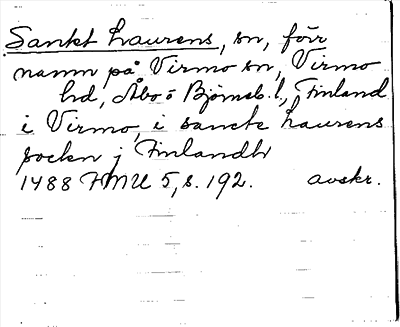 Sankt Laurens, sn, förr
namn på Virmo sn, Virmo
hd, Åbo o Björneb. l., Finland
i Virmo, i sancte Laurens
sockn j Finlandh
1488 FMU 5, s. 192. avskr.